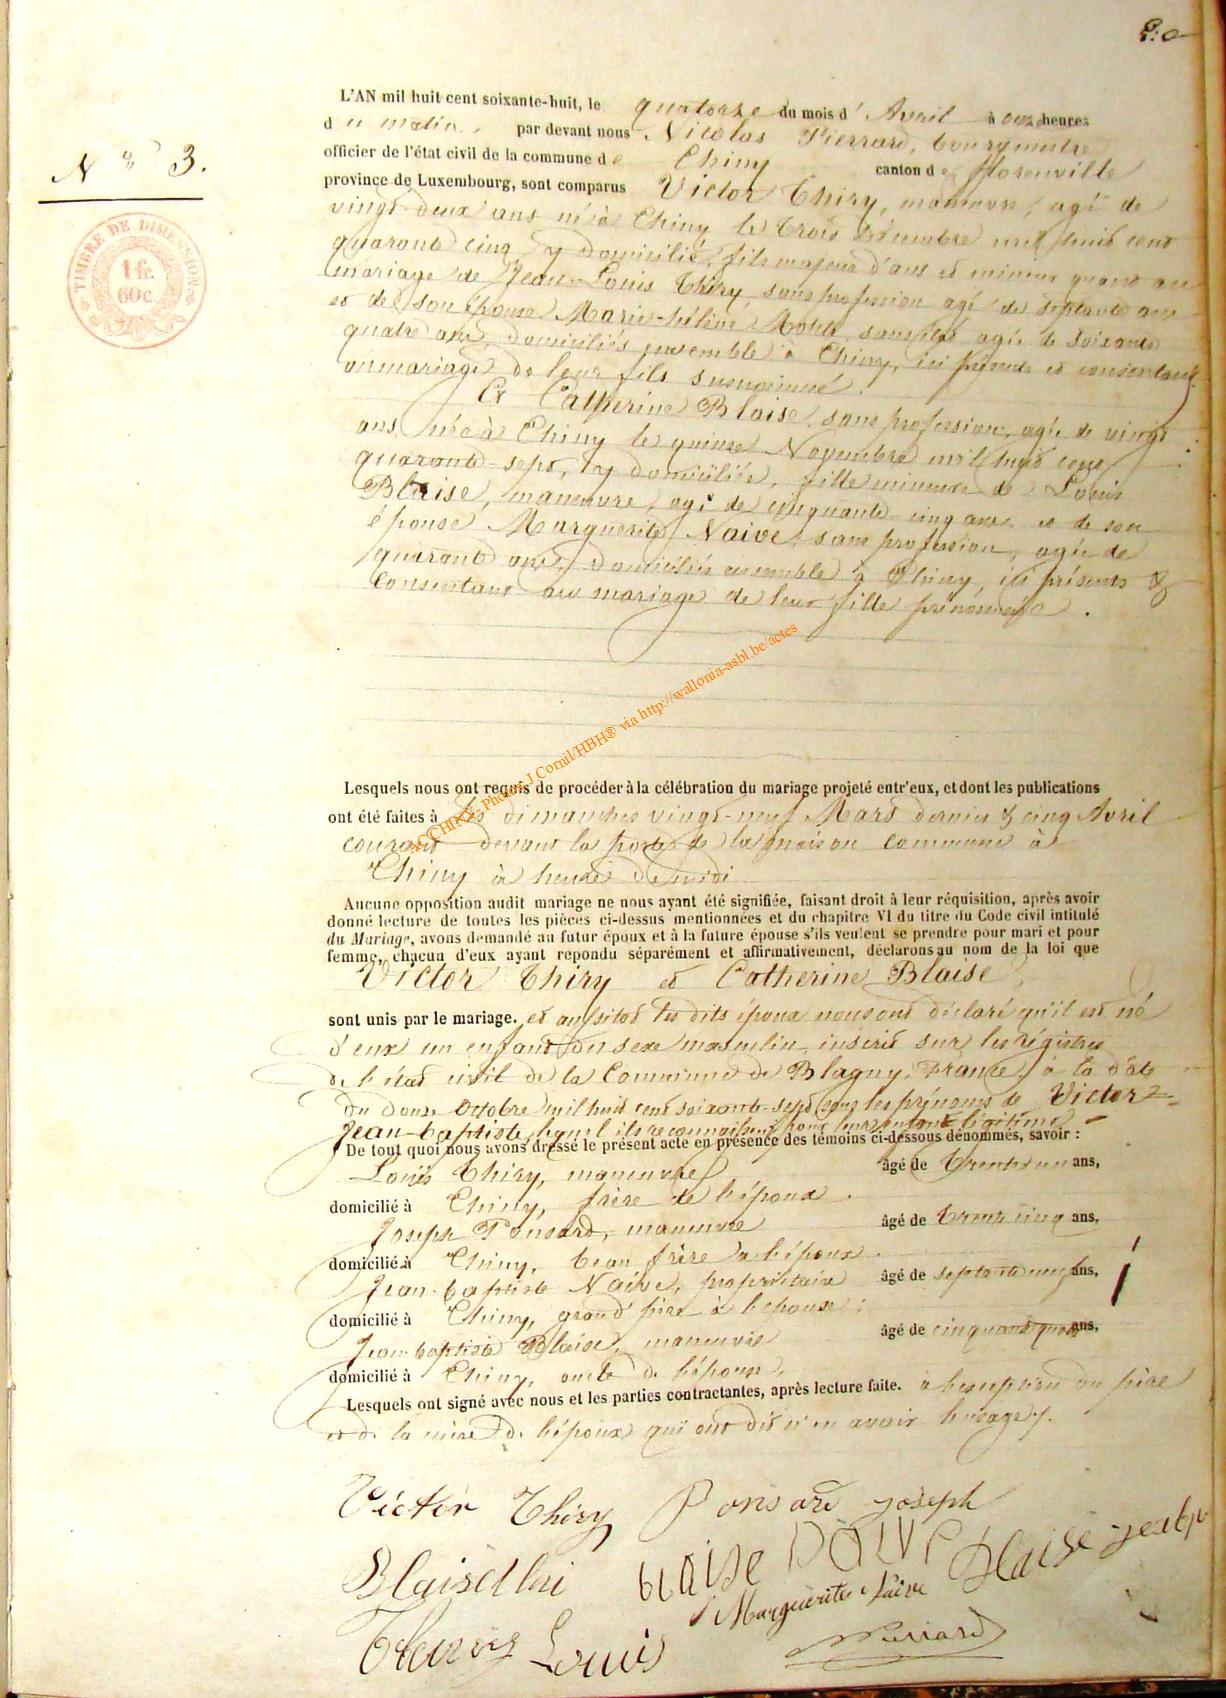 N° 3.
TIMBRE DE DIMENSION
1 fr.
60 c.
L'AN mil huit cent soixante-huit, le quatorze du mois d'Avril à onze heures
du matin, par devant nous Nicolas Pierrard, bourgmestre
officier de l'état civil de la commune de Chiny canton de Florenville
province de Luxembourg, sont comparus Victor Thiry, manœuvre, agé de
vingt-deux ans né à Chiny le trois Décembre mil huit cent
quarante cinq, y domicilié, fils majeur d'ans et mineur quant au
mariage de Jean-Louis Thiry sans profession agé de septante ans
et de son épouse Marie-hélène sans agée de soixante
quatre ans, domiciliés ensemble à Chiny, ici présents et consentant
au mariage de leur fils susnommé.
Et Catherine Blaise, sans profession, agée de vingt
ans, née à Chiny le quinze Novembre mil huit cent
quarante-sept, y domiciliée, fille mineure de Louis
Blaise, manœuvre, agé de cinquante-cinq ans, et de son
épouse Marguerite Naive, sans profession, agée de
quarante ans, domiciliés ensemble à Chiny, ici présents &
consentant au mariage de leur fille prénommée.
Lesquels nous ont requis de procéder à la célébration du mariage projeté entr'eux, et dont les publications
ont été faites à les dimanches vingt-neuf Mars dernier & cinq Avril
courant devant la porte de la maison commune à
Chiny à heure de midi
Aucune opposition audit mariage ne nous ayant été signifiée, faisant droit à leur réquisition, après avoir
donné lecture de toutes les pièces ci-dessus mentionnées et du chapitre VI du titre du Code civil intitulé
du Mariage, avons demandé au futur époux et à la future épouse s'ils veulent se prendre pour mari et pour
femme, chacun d'eux ayant repondu séparément et affirmativement, déclarons au nom de la loi que
Victor Thiry et Catherine Blaise,
sont unis par le mariage. et aussitot les dits époux nous ont déclaré qu'il est né
d'eux un enfant du sexe masculin inscrit sur les régistres
de l'état civil de la Commune de Blagny, France, à la date
du douze Octobre mil huit cent soixante-sept sous les prénoms de Victor
Jean-baptiste, lequel ils reconnaissent pour leur enfant légitime
De tout quoi nous avons dressé le présent acte en présence des témoins ci-dessous dénommés, savoir :
Louis Thiry, manœuvre âgé de trente un ans,
domicilié à Chiny, frère de l'époux.
Joseph Ponsard, manœuvre âgé de trente cinq ans,
domicilié à Chiny, beau frère à l'époux.
Jean-baptiste Naive, propriétaire âgé de septante neuf ans,
domicilié à Chiny, grand père à l'épouse;
Jean-baptiste Blaise, manœuvre âgé de cinquante quatre ans,
domicilié à Chiny, oncle de l'épouse,
Lesquels ont signé avec nous et les parties contractantes, après lecture faite. à l'exception du père
et de la mère de l'époux qui ont dit n'en avoir l'usage.
Victor Thiry Ponsard joseph
Blaise Blaise
Marguerite Naive
Louis Pierrard
ACCHINY- Photos J.Cornil/HBH® via http://wallonia-asbl.be/actes